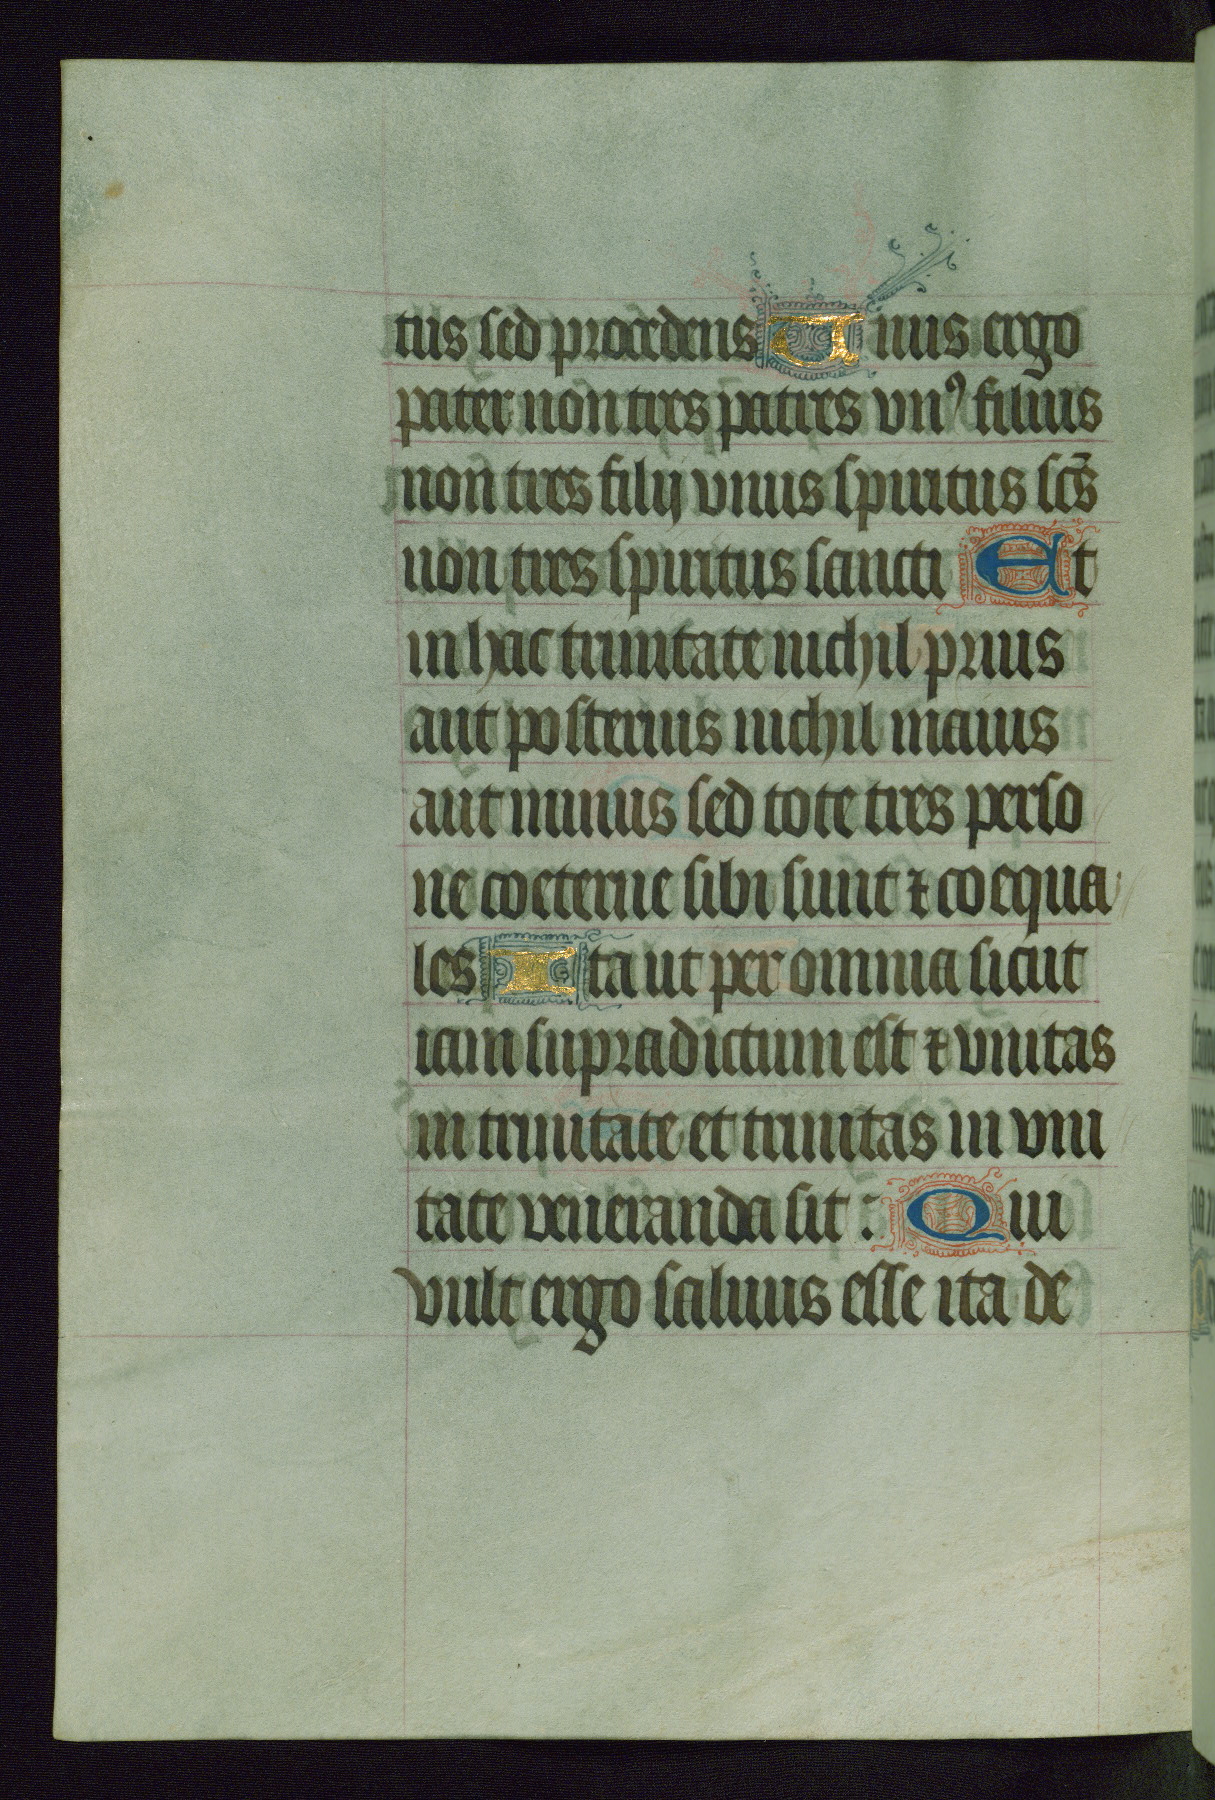 tus sed procedens Unus ergo
pater non tres patres vnꝰ filius
non tres filij vnus spiritus scs̄
non tres spiritus sancti Et
in hac trinitate nichil prius
aut posterius nichil maius
aut minus sed tote tres perso
ne coeterne sibi sunt ⁊ coequa
les Ita ut per omnia sicut
iam supradictum est ⁊ vnitas
in trinitate et trinitas in vni
tate veneranda sit : Qui
vult ergo saluus esse ita de